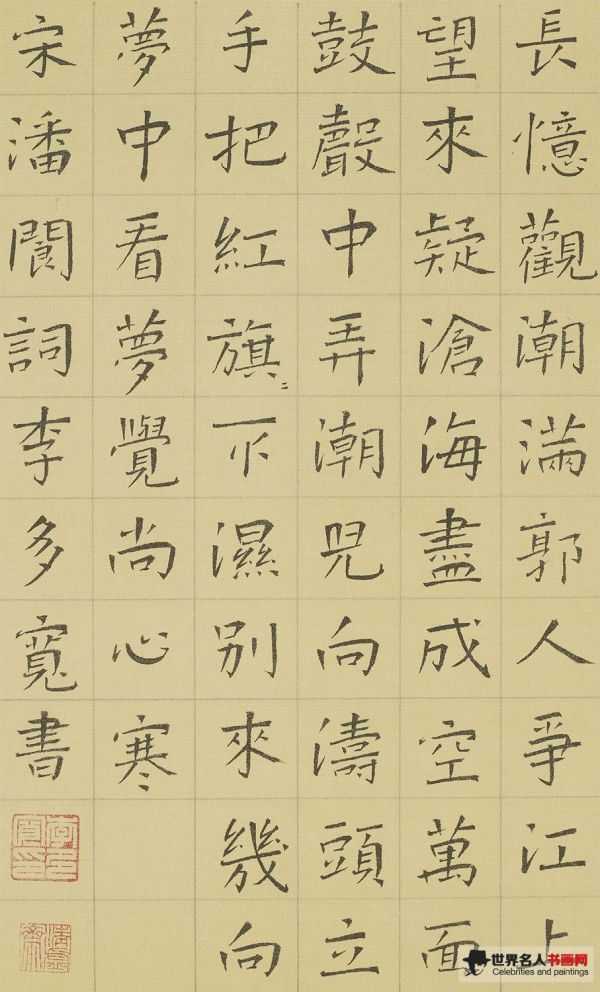 長憶觀潮滿郭人爭江上
望來疑滄海盡成空萬面
鼓聲中弄潮兒向濤頭立
手把紅旗〻不濕別來幾向
夢中看夢覺尚心寒
宋潘閬詞李多寬書
世界名人书画网
Celebrities and paintings